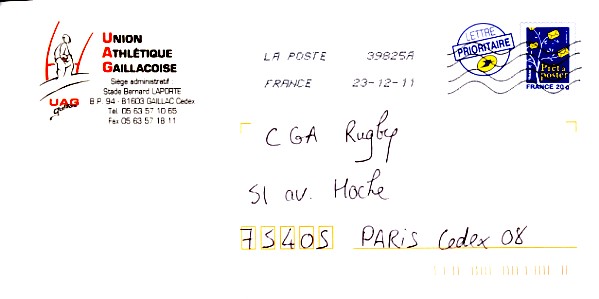 UNION
ATHLÉTIQUE
GAILLACOISE
Siège administratif
Stade Bernard LAPORTE
B.P. 94 - 81603 GAILLAC Cedex
Tél. 05 63 57 10 65
Fax 05 63 57 18 11
UAG
LA POSTE 39825A
FRANCE 23-12-11
LETTRE
PRIORITAIRE
Prêt à
poster
FRANCE 20g
CGA Rugby
51 av. Hoche
75405 PARIS Cedex 08